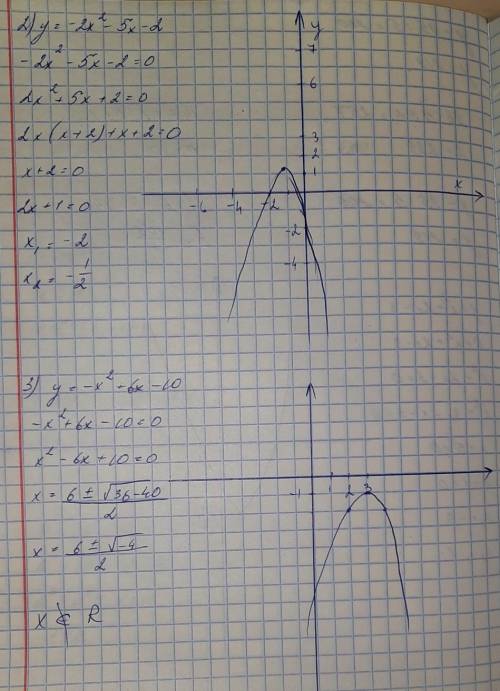 2) y = -2x² - 5x - 2
-2x² - 5x - 2 = 0
2x² + 5x + 2 = 0
2x(x+2) + x + 2 = 0
x + 2 = 0
2x + 1 = 0
x₁ = -2
x₂ = -1/2
y
7
6
3
2
1
x
-6 -4 -2
-2
-4
3) y = -x² + 6x - 10
-x² + 6x - 10 = 0
x² - 6x + 10 = 0
x = (6 ± √36-40)/2
x = (6 ± √-4)/2
x ∉ R
1 2 3
-1